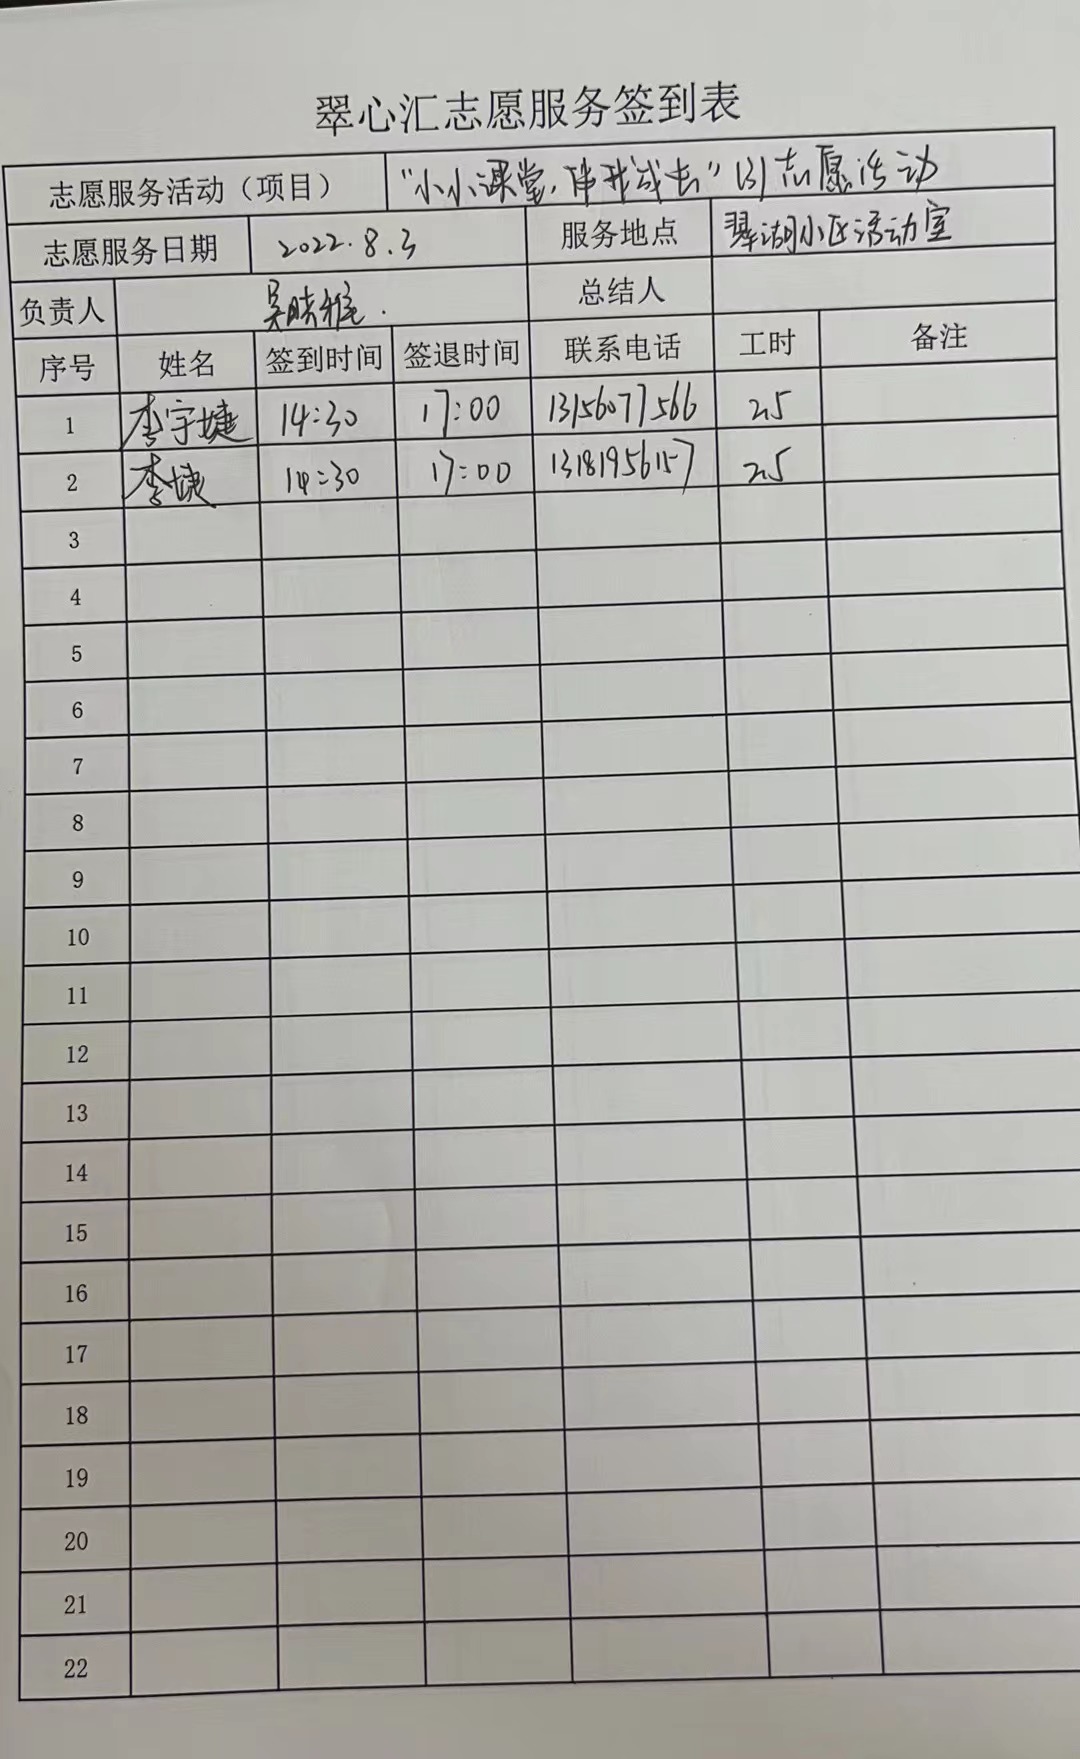 翠心汇志愿服务签到表
志愿服务活动（项目） “小小课堂，伴我成长”(3)志愿活动
志愿服务日期 2022.8.3 服务地点 翠湖小区活动室
负责人 吴晓雅. 总结人
序号 姓名 签到时间 签退时间 联系电话 工时 备注
1 李宇婕 14:30 17:00 13156077566 2.5
2 李婕 14:30 17:00 13181956157 2.5
3
4
5
6
7
8
9
10
11
12
13
14
15
16
17
18
19
20
21
22